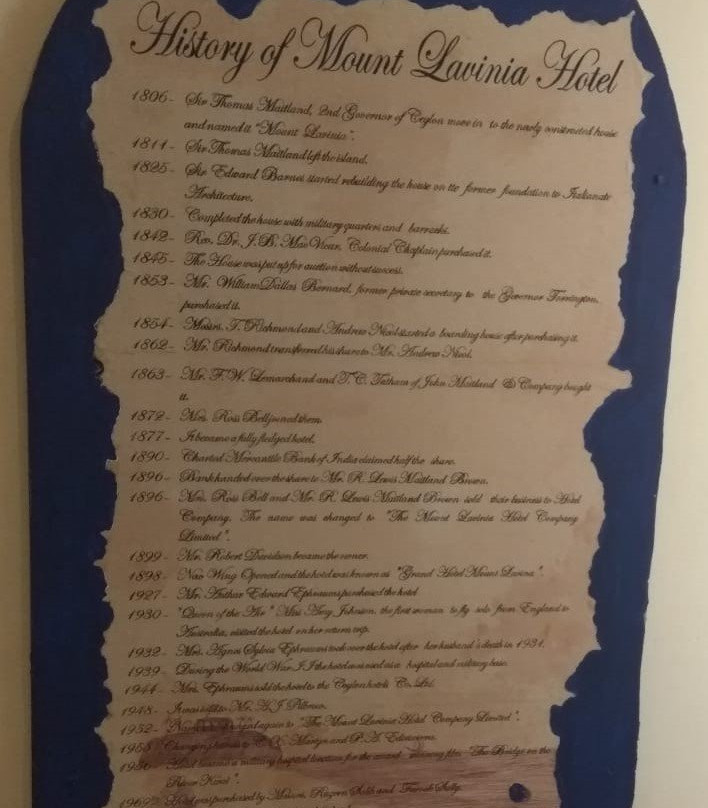 History of Mount Lavinia Hotel
1806- Sir Thomas Maitland, 2nd Governor of Ceylon move in to the newly constructed house
and named it "Mount Lavinia".
1811- Sir Thomas Maitland left the island.
1825- Sir Edward Barnes started rebuilding the house on the former foundation to Italianate
Architecture.
1830- Completed the house with military quarters and barracks.
1842- Rev. Dr. J.B. MacVicar, Colonial Chaplain purchased it.
1845- The House was put up for auction without success.
1853- Mr. William Dallas Bernard, former private secretary to the Governor Torrington,
purchased it.
1854- Messrs. T. Richmond and Andrew Nicol started a boarding house after purchasing it.
1862- Mr. Richmond transferred his share to Mr. Andrew Nicol.
1863- Mr. F.W. Lemarchand and T.C. of John Maitland & Company bought
it.
1872- Mrs. Ross Bell joined them.
1877- It became a fully fledged hotel.
1890- Charted Mercantile Bank of India claimed half the share.
1896- Bank handed over the share to Mr. R. Lewis Maitland Brown.
1896- Mrs. Ross Bell and Mr. R. Lewis Maitland Brown sold their business to Hotel
Company. The name was changed to "The Mount Lavinia Hotel Company
Limited".
1899- Mr. Robert Davidson became the owner.
1898- New Wing Opened and the hotel was known as "Grand Hotel Mount Lavinia".
1927- Mr. Arthur Edward Ephraums purchased the hotel
1930- "Queen of the Air" Miss Amy Johnson, the first woman to fly solo from England to
Australia, visited the hotel on her return trip.
1932- Mrs. Agnes Sylvia Ephraums took over the hotel after her husband's death in 1931.
1939- During the World War II the hotel was used as a hospital and military base.
1944- Mrs. Ephraums sold the hotel to the Ceylon hotels Co. Ltd.
1948- It was sold to Mr. H.J
1952- again to "The Mount Lavinia Hotel Company Limited".
Changing hands to and P.A.
Hotel became a military hospital location for the award winning film "The Bridge on the
River Kwai".
Hotel was purchased by Messrs, and